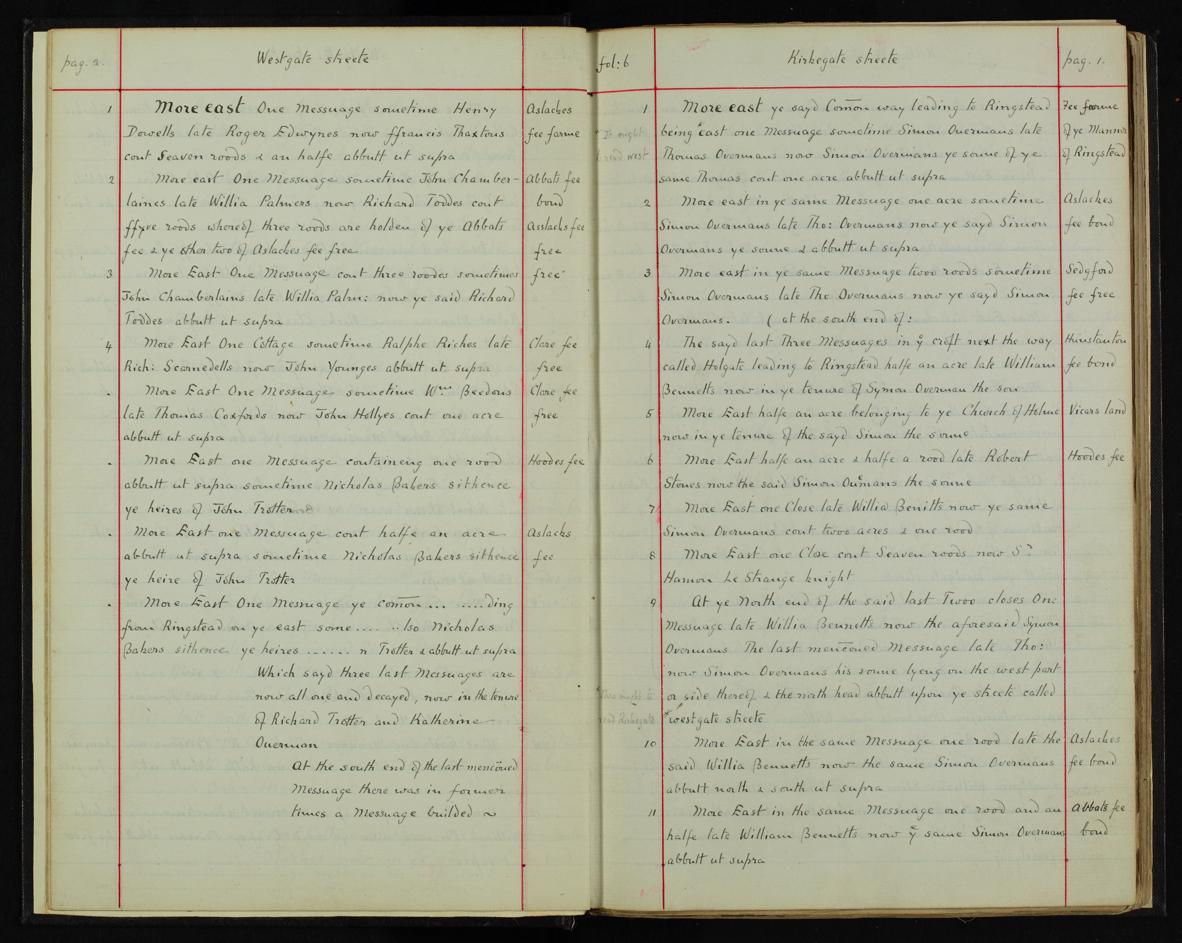 pag. 2.
Westgate streete
1 More east One Messuage sometime Henry Aslaches
Powells late Roger Edwynes now ffrancis Thaxtons fee farme
cont Seaven roods & an halfe abbutt ut supra
2 More east One Messuage sometime John Chamber- Abbats fee
laines late Willia Palmers now Richard Toddes cont bond
ffyve roods whereof three roods are holden of ye Abbats Asslachs fee
fee & ye other two of Aslaches fee free free
3 More East One Messuage cont three roodes sometimes free
John Chamberlains late Willia Palm: now ye said Richard
Toddes abbutt ut supra
4 More East One Cottage sometime Ralphe Riches late Clare fee
Rich: Scarnedells now John Younges abbutt ut supra free
. More East One Messuage sometime Wm Beedons Clare fee
late Thomas Coxfords now John Hollyes cont one acre free
abbutt ut supra
. More East one Messuage containeng one rood Hoodes fee
abbutt ut supra sometime Nicholas Bakers sithence
ye heires of John Trotter
. More East one Messuage cont halfe an acre Aslachs
abbutt ut supra sometime Nicholas Bakers sithence fee
ye heire of John Trotter
. More East One Messuage ye comōn ... .....ding
from Ringstead on ye east some..... ..lso Nicholas
Bakers sithence ye heires ...... n Trotter & abbutt ut supra
Which sayd three last Messuages are
now all one and decayed, now in the tenure
of Richard Trotter and Katherine
Overman
At the south end of the last mencōned
Messuage there was in former
times a Messuage builded ~
fol: 6
Kirkegate streete
pag. 1.
1 More east ye sayd Comōn way leading to Ringstead Fee farme
being *east one Messuage sometime Simon Overmans late of ye Mannor
Thomas Overmans now Simon Overmans ye sonne of ye of Ringstead
same Thomas cont one acre abbutt ut supra
* It ought
read west
2 More east in ye same Messuage one acre sometime Aslaches
Simon Overmans late Tho: Overmans now ye sayd Simon fee bond
Overmans ye sonne & abbutt ut supra
3 More east in ye same Messuage twoo roods sometime Sedgford
Simon Overmans late Tho Overmans now ye sayd Simon fee free
Overmans. ( at the south end of:
4 The sayd last Three Messuages in ye croft next the way Hunstanton
called Holgate leading to Ringstead halfe an acre late William fee bond
Bennetts now in ye tenure of Symon Overman the son
5 More East halfe an acre belonging to ye Church of Holme Vicars land
now in ye tenure of the sayd Simon the sonne
6 More East halfe an acre & halfe a rood late Robert Hoodes fee
Stones now the said Simon Oūmans the sonne
7 More East one Close late Willia Benitts now ye same
Simon Overmans cont twoo acres & one rood
8 More East one Close cont Seaven roods now Sr
Hamon Le Strange knight
9 At ye North end of the said last Twoo closes One
Messuage late Willia Bennetts now the aforesaid Symon
Overmans The last mencōned Messuage late Tho:
now Simon Overmans his sonne lyeng on the west part
or side thereof & the north head abbutt upon ye streete called
*westgate streete
10 More East in the same Messuage one rood late the Aslaches
said Willia Bennetts now the same Simon Overmans fee bond
abbutt north & south ut supra
11 More East in the same Messuage one rood and an Abbats fee
halfe late William Bennetts now ye same Simon Overmans bond
abbutt ut supra